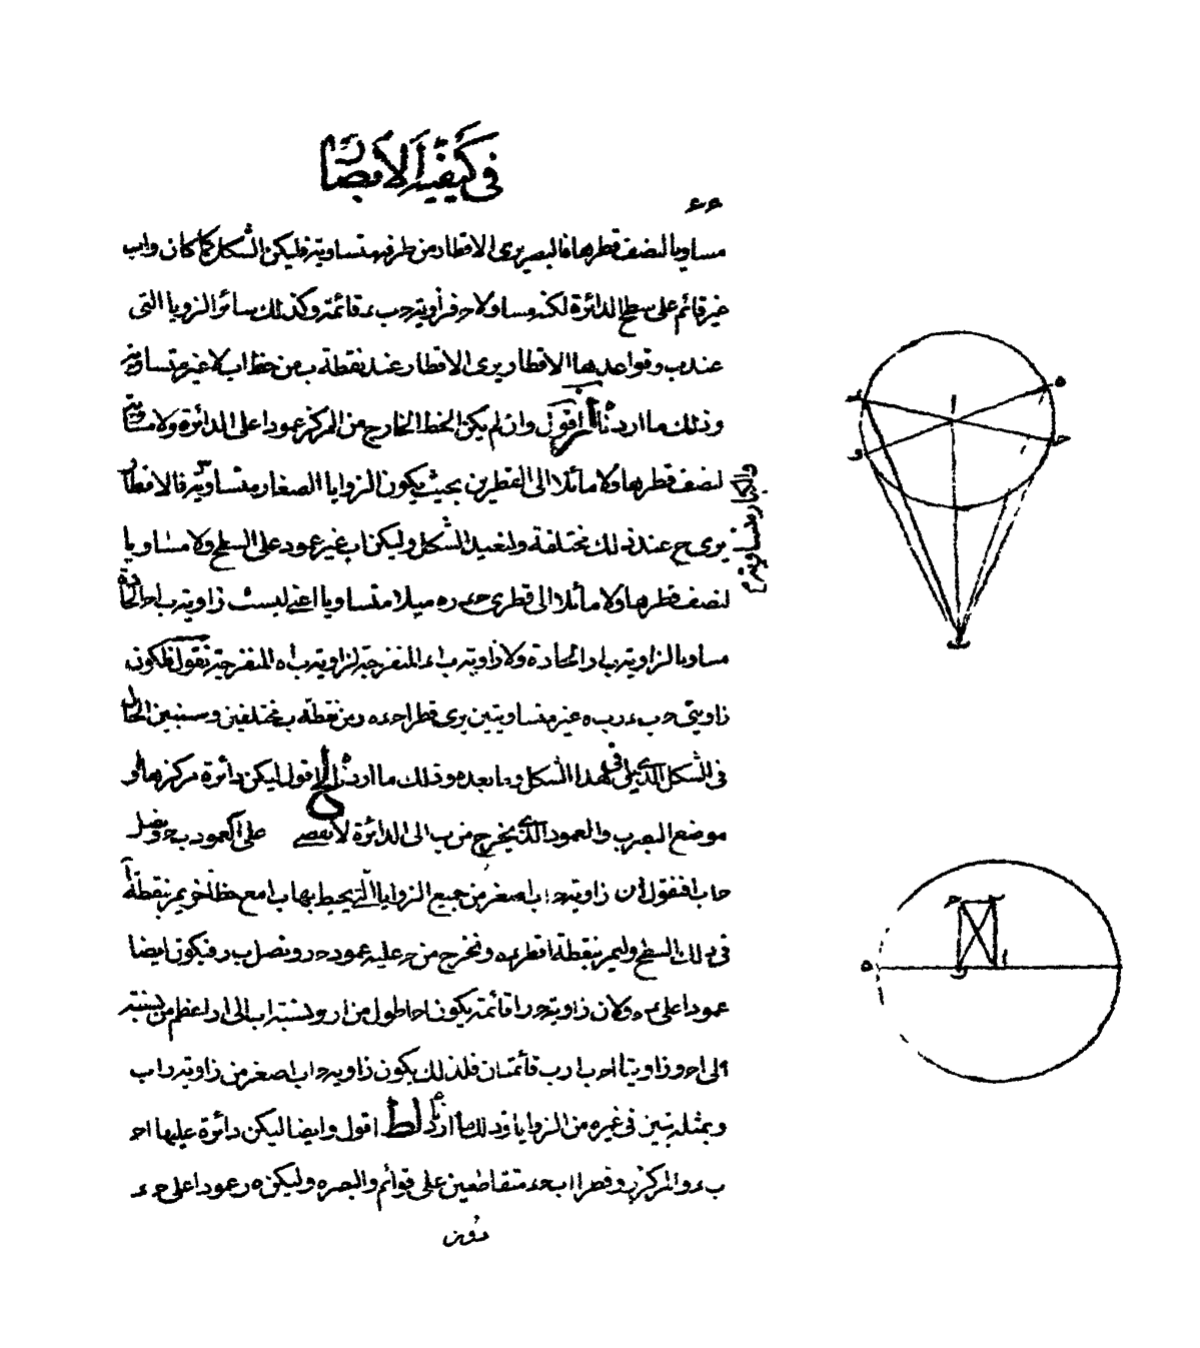 في كيفية الابصار
٤٤
مساويا لنصف قطرها فالبصر يرى الاقطار من طرفه متساوية فليكن الشكل كما كان واب
غير قائم على سطح الدائرة لكنه مساو لا ح فزاوية ح ب ء قائمة وكذلك سائر الزوايا التى
عند ب وقواعدها الاقطار ويرى الاقطار عند نقطة ب من خط اب لا غير متساوية
وذلك ما اردناه اقول وان لم يكن الخط الخارج من المركز عمودا على الدائرة ولا مساويا
لنصف قطرها ولا مائلا الى القطرين بحيث يكون الزوايا الصغار متساوية فالاقطار
والكبار متساوية
يرى ح عند ذلك مختلفة ولنعيد الشكل وليكن اب غير عمود على السطح ولا مساويا
لنصف قطرها ولا مائلا الى قطرى حء ره ميلا متساويا اعنى ليست زاوية ب ا ح الحادة
مساويا لزاوية ب ا د الحادة ولا زاوية ب ا ء المنفرجة لزاوية ب ا ه المنفرجة نقول فلكون
زاويتى ح ب ء ر ب ه غير متساويتين يرى قطرا حء ه ر من نقطة ب مختلفين وسنبين الحال
فى الشكل الذى يلى هذا الشكل وما بعده وذلك ما اردناه لح اقول ليكن دائرة مركزها ا و
موضع البصر ب والعمود الذى يخرج من ب الى الدائرة لا على العمود ب ح ونصل
ح ا ب ا فنقول ان زاوية ح ا ب اصغر من جميع الزوايا التى يحيط بها ب ا مع خط آخر يمر بنقطة ا
فى ذلك السطح وليمر بنقطة ا قطر ء ه ونخرج من ح عليه عمود ح ر ونصل ب ر فيكون ايضا
عمودا على ء ه ولان زاوية ح ر ا قائمة يكون ا ح اطول من ا ر ونسبة ا ب الى ا ر اعظم من نسبته
الى ا ح وزاويتا ا ح ب ا ر ب قائمتان فلذلك يكون زاوية ح ا ب اصغر من زاوية ر ا ب
وبمثله تبين فى غيره من الزوايا وذلك ما اردناه لط اقول وايضا ليكن دائرة عليها ا ح
ب ء والمركز ر وقطرا ا ب حء متقاطعين على قوائم والبصر ه وليكن ه ر عمودا على ح ء
دون
ا
ه
ح
ء
و
ب
ح
ب
ه
ر
ا